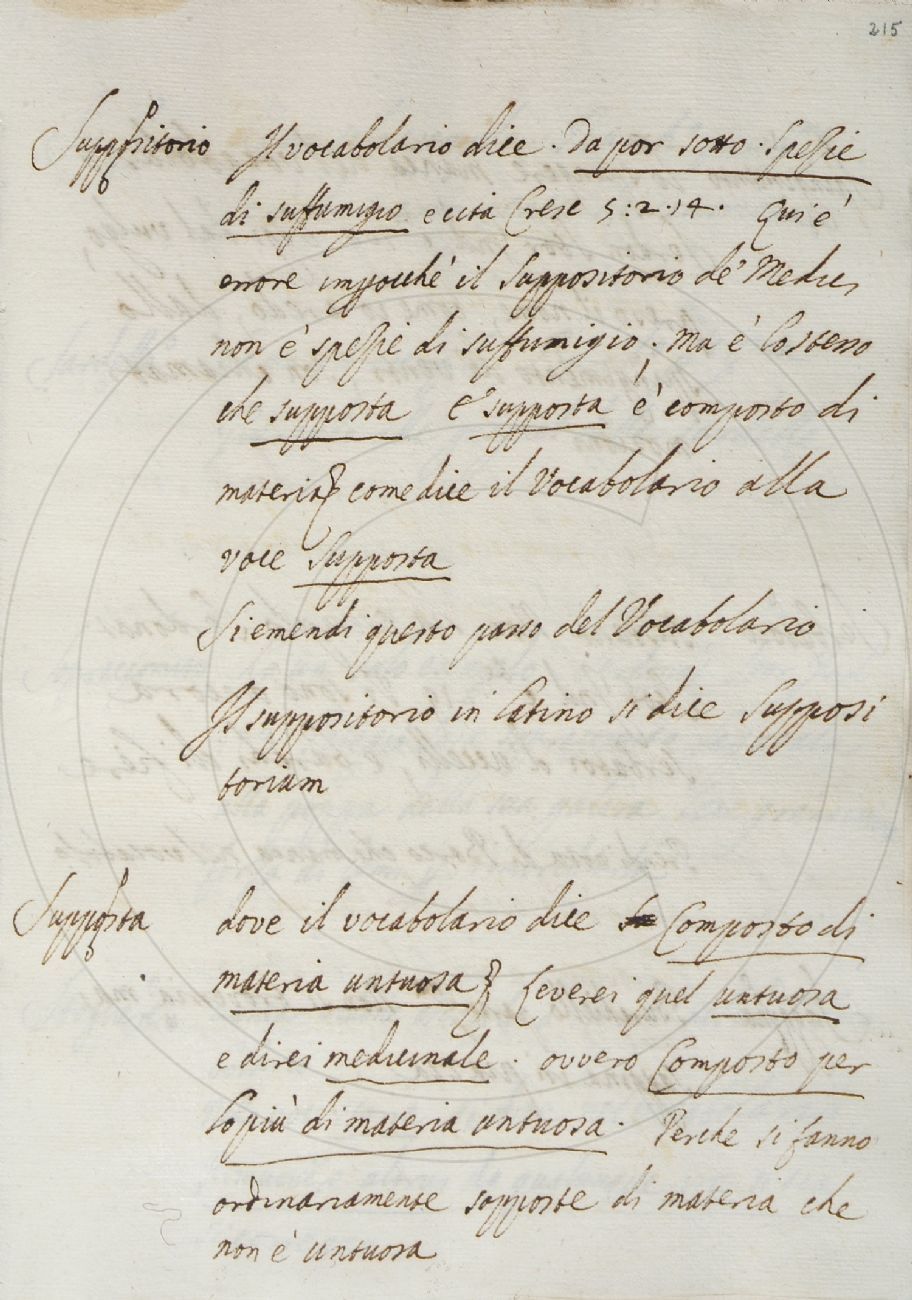 215
Suppositorio Il vocabolario dice. Da por sotto. Spezie
di suffumigio e cita Cresc 5:2.14. Qui è
errore impocchè il suppositorio de' Medici
non è spezie di suffumigio. Ma è lo stesso
che supposta e supposta è composto di
materia come dice il Vocabolario alla
voce Supposta
Si emendi questo passo del Vocabolario
Il suppositorio in latino si dice Supposi
torium
Supposta dove il vocabolario dice Composto di
materia untuosa leverei quel untuosa
e direi medicinale. ovvero Composto per
lo più di materia untuosa. Perche si fanno
ordinariamente supposte di materia che
non è untuosa